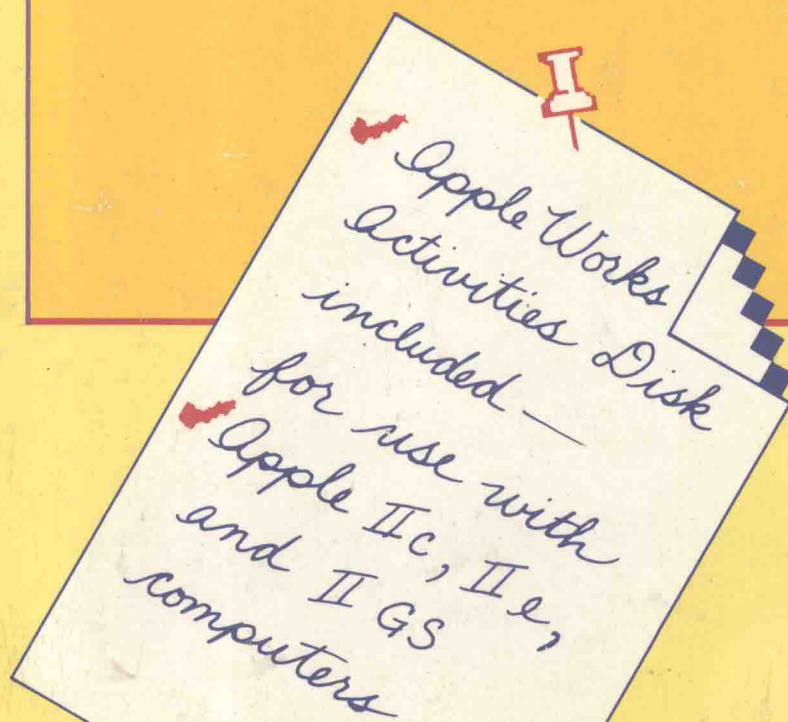 Apple Works
Activities Disk
included —
for use with
Apple IIc, IIe,
and II GS
computers